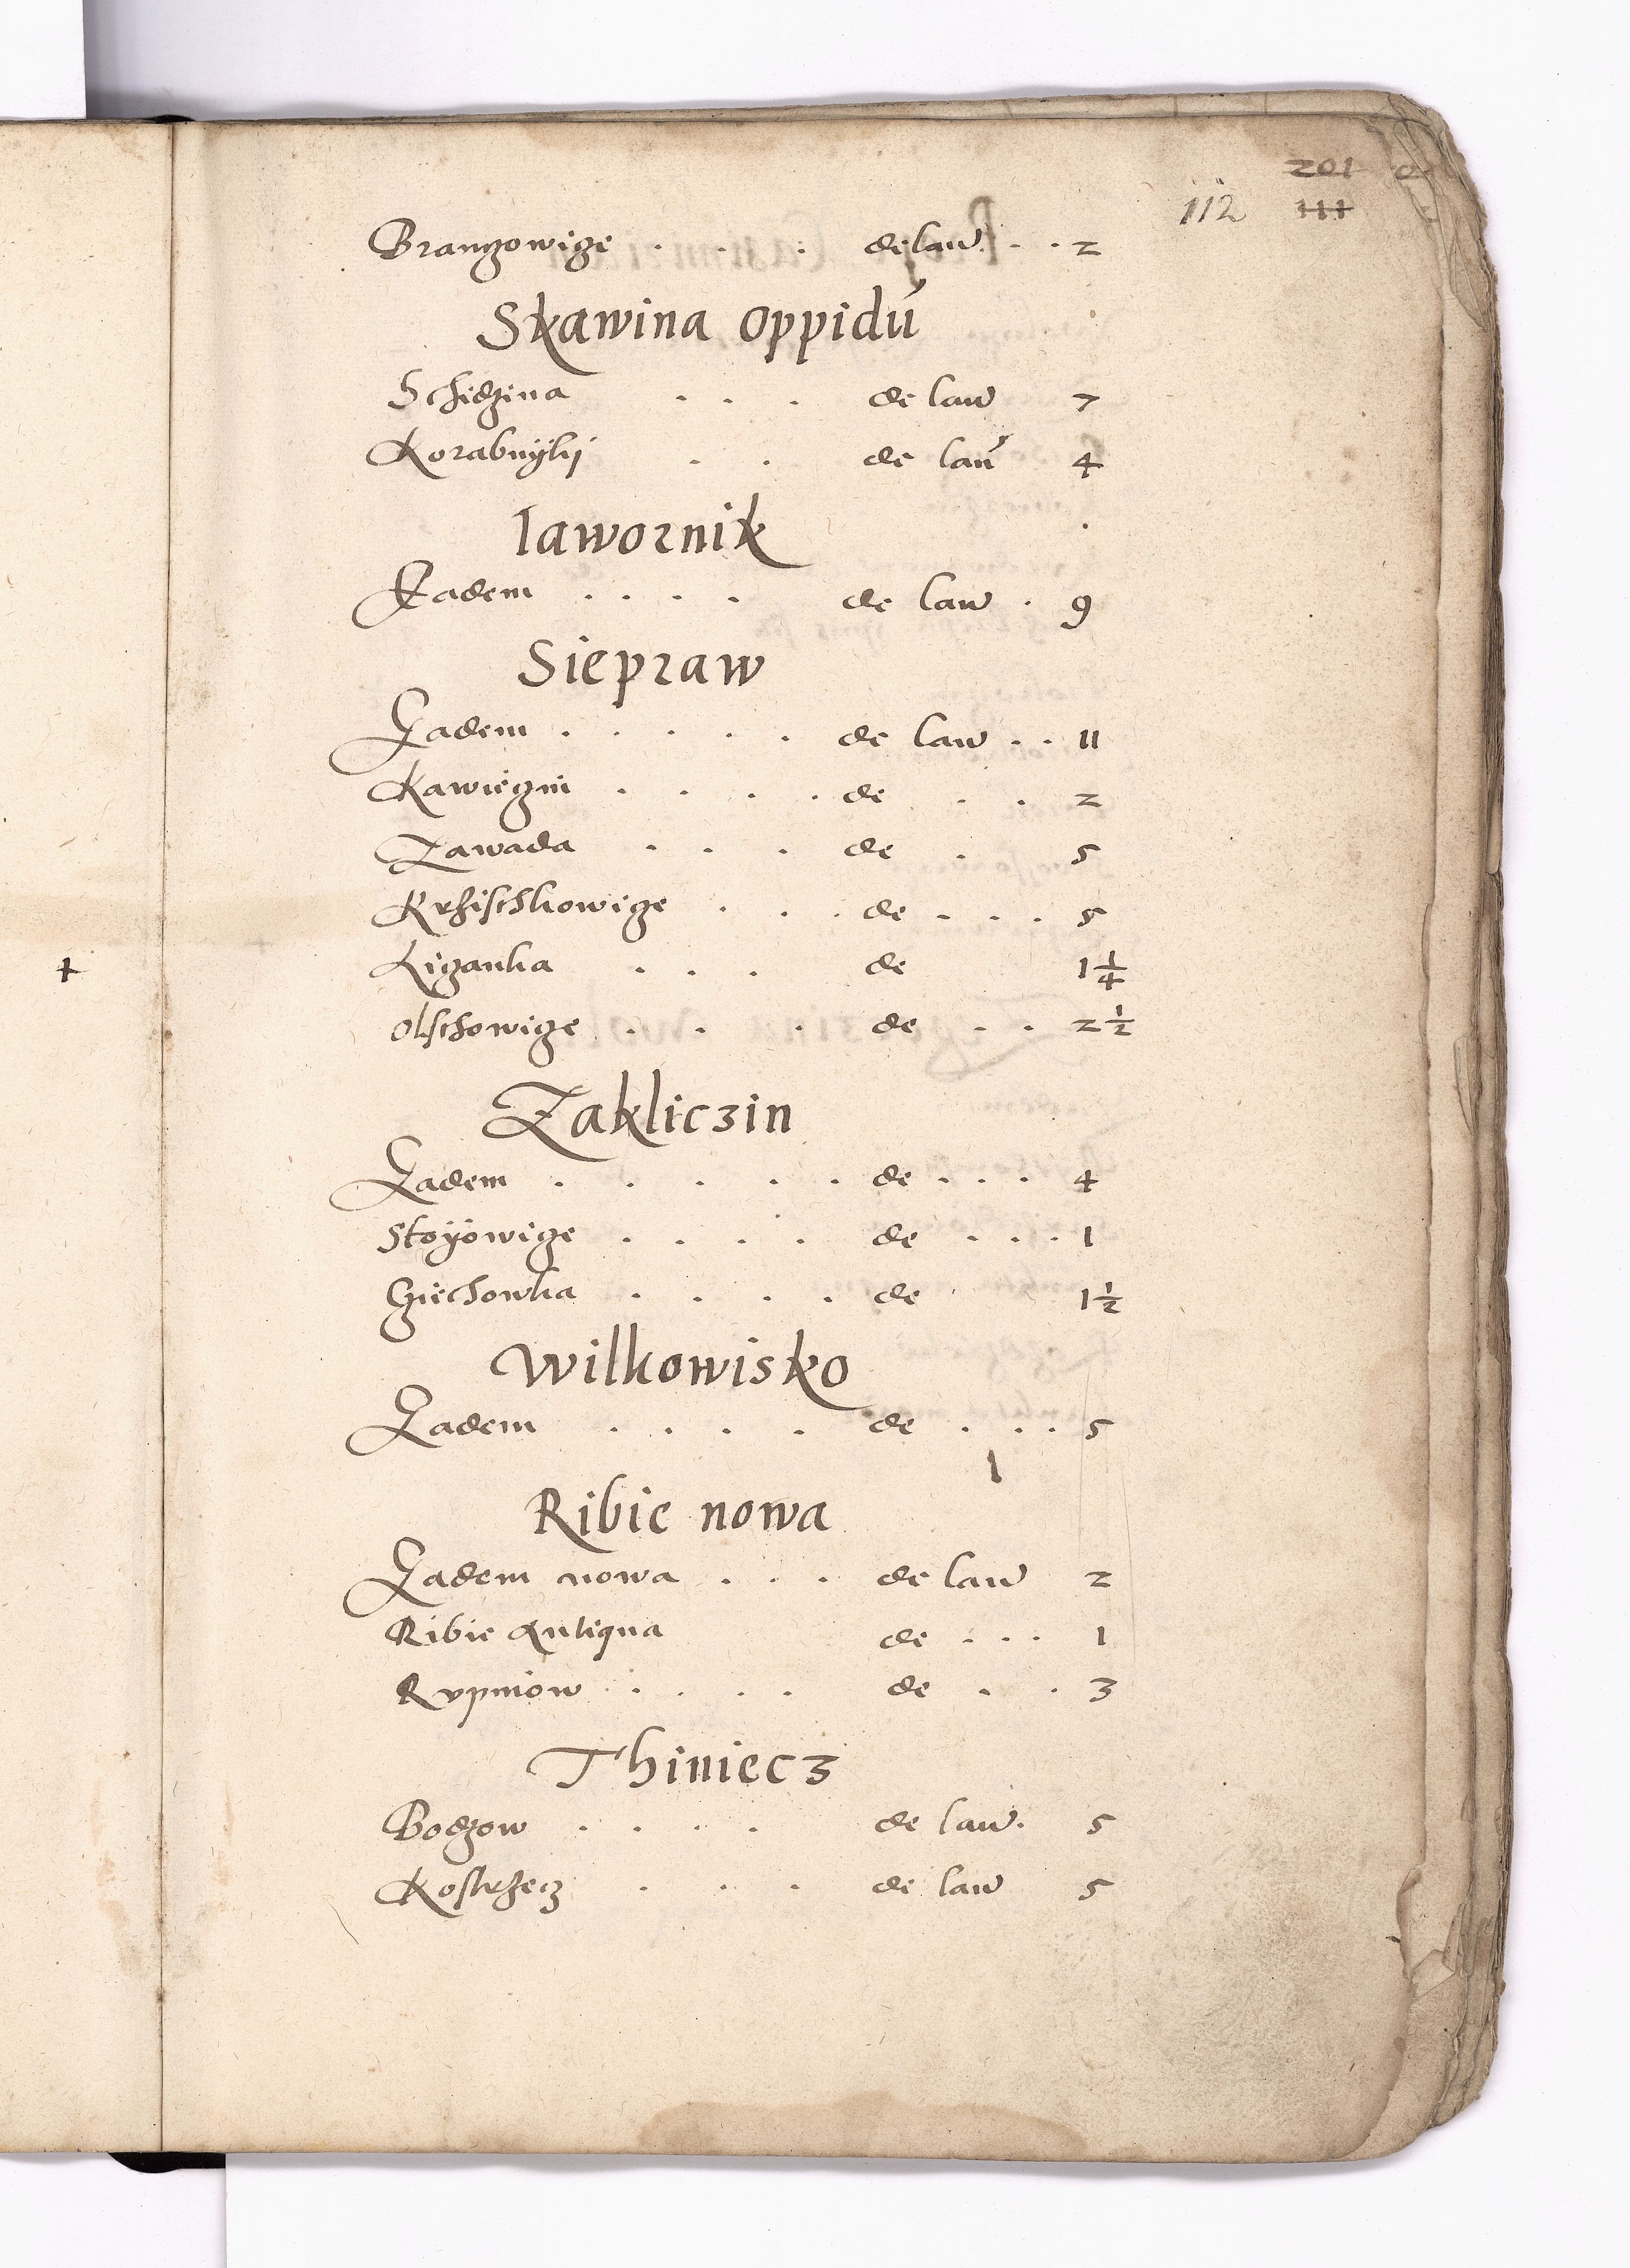 201
112 111
Branczowicze . . . de laū . . 2
Skawina oppidú
Schidzina . . . de laū 7
Korabnÿkÿ . . de laú 4
Iawornik
Eadem . . . . de laū . 9
Siepraw
Eadem . . . . . de laū . . 11
Kawieczni . . . . de . . 2
Zawada . . . de . 5
Krzischkowicze . . . de . . . 5
Liganka . . . de 1 1/4
Olschowicze . . . de . . 2 1/2
Zakliczin
Eadem . . . . . de . . . 4
Stoÿowicze . . . . de . . . 1
Cziechowka . . . . de 1 1/2
Wilkowisko
Eadem . . . . de . . . 5
Ribie nowa
Eadem nowa . . . de laū 2
Ribie Antiqua de . . . 1
Rvpniow . . . . de . . 3
Thiniecz
Bodzow . . . . de laū. 5
Kostrzecz . . . de laū 5